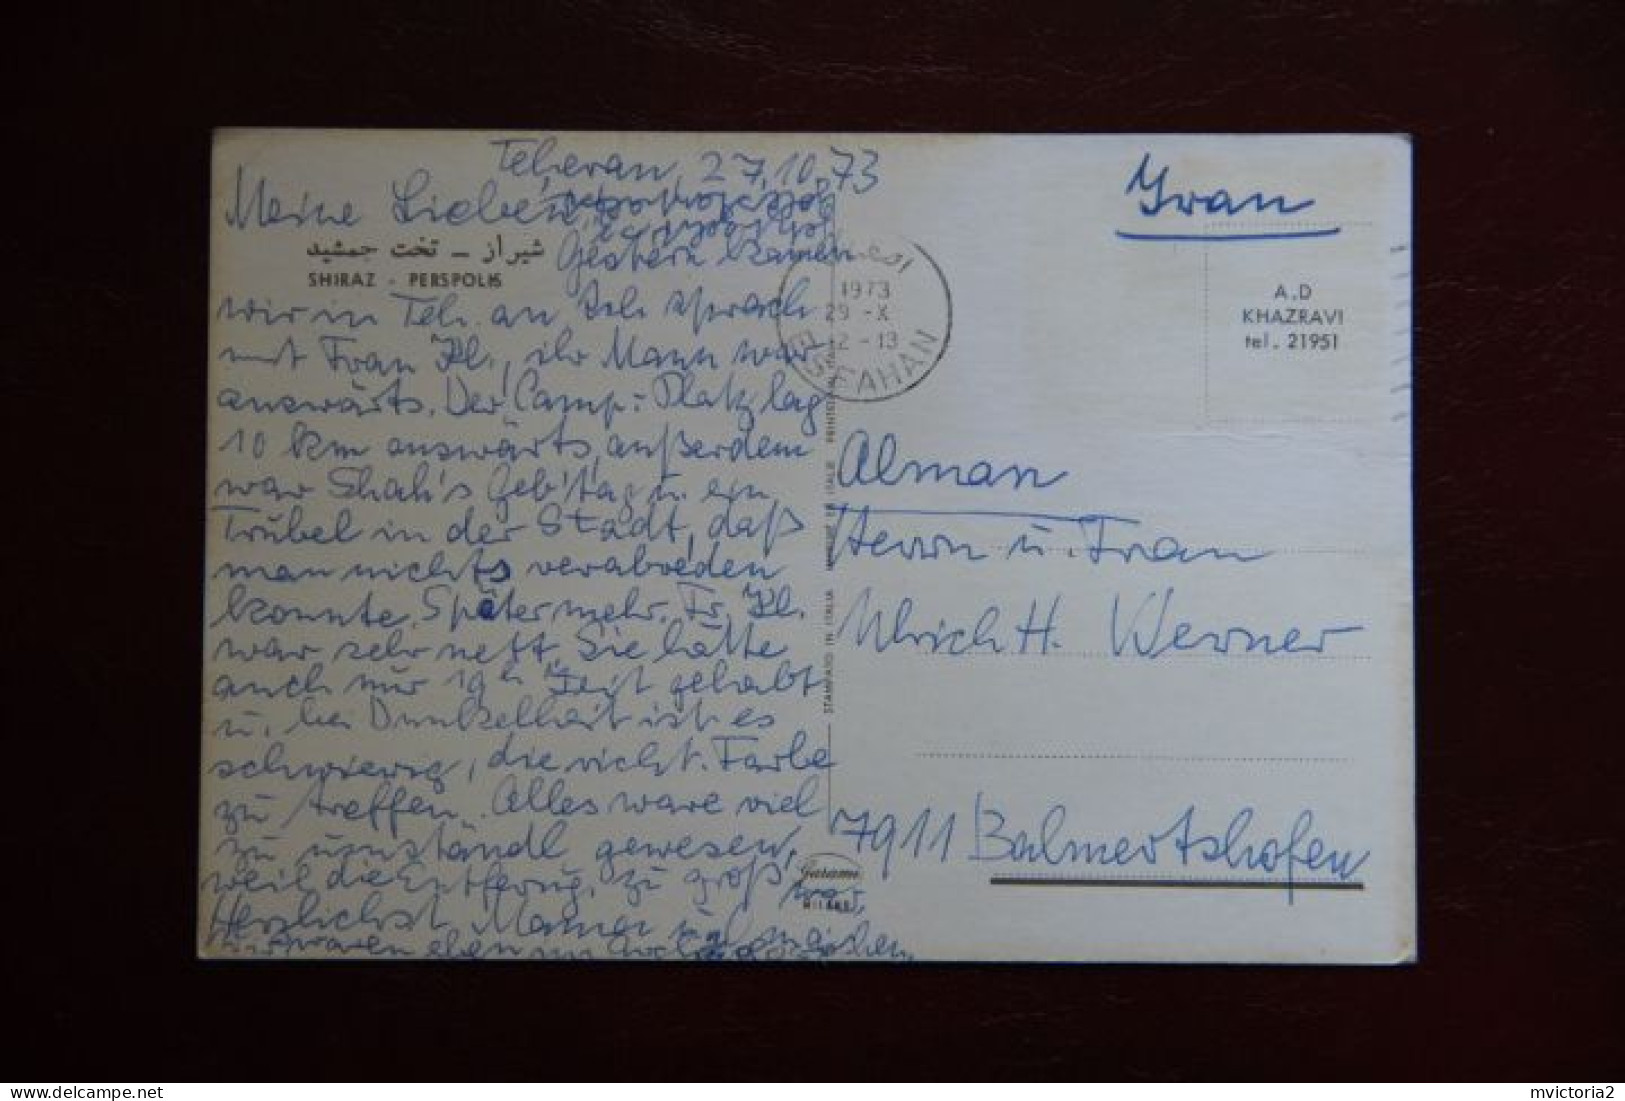 Teheran, 27.10.73
Meine Lieben
شیراز – تخت جمشید
SHIRAZ - PERSPOLIS
Gestern kamen
wir in Teh. an Ich sprach
mit Frau Kl., ihr Mann war
auswärts. Der Camp-Platz lag
10 km auswärts, außerdem
war Shah's Geb'tag u. ein
Trubel in der Stadt, daß
man nichts verabreden
konnte. Später mehr. Fr. Kl.
war sehr nett. Sie hätte
auch nur 1gh Zeit gehabt
u. bei Dunkelheit ist es
schwierig, die richt. Farbe
zu treffen. Alles wäre viel
zu umständl. gewesen,
weil die Entferng. zu groß war,
Herzlichst Mama
waren eben im
1973
29 -X
12 -13
ESFAHAN
STAMPATO IN ITALIA
Garami
MILANO
Iran
A.D
KHAZRAVI
tel. 21951
Alman
Herrn u. Frau
Ulrich H. Werner
7911 Balmertshofen
delcampe.net
mvictoria2